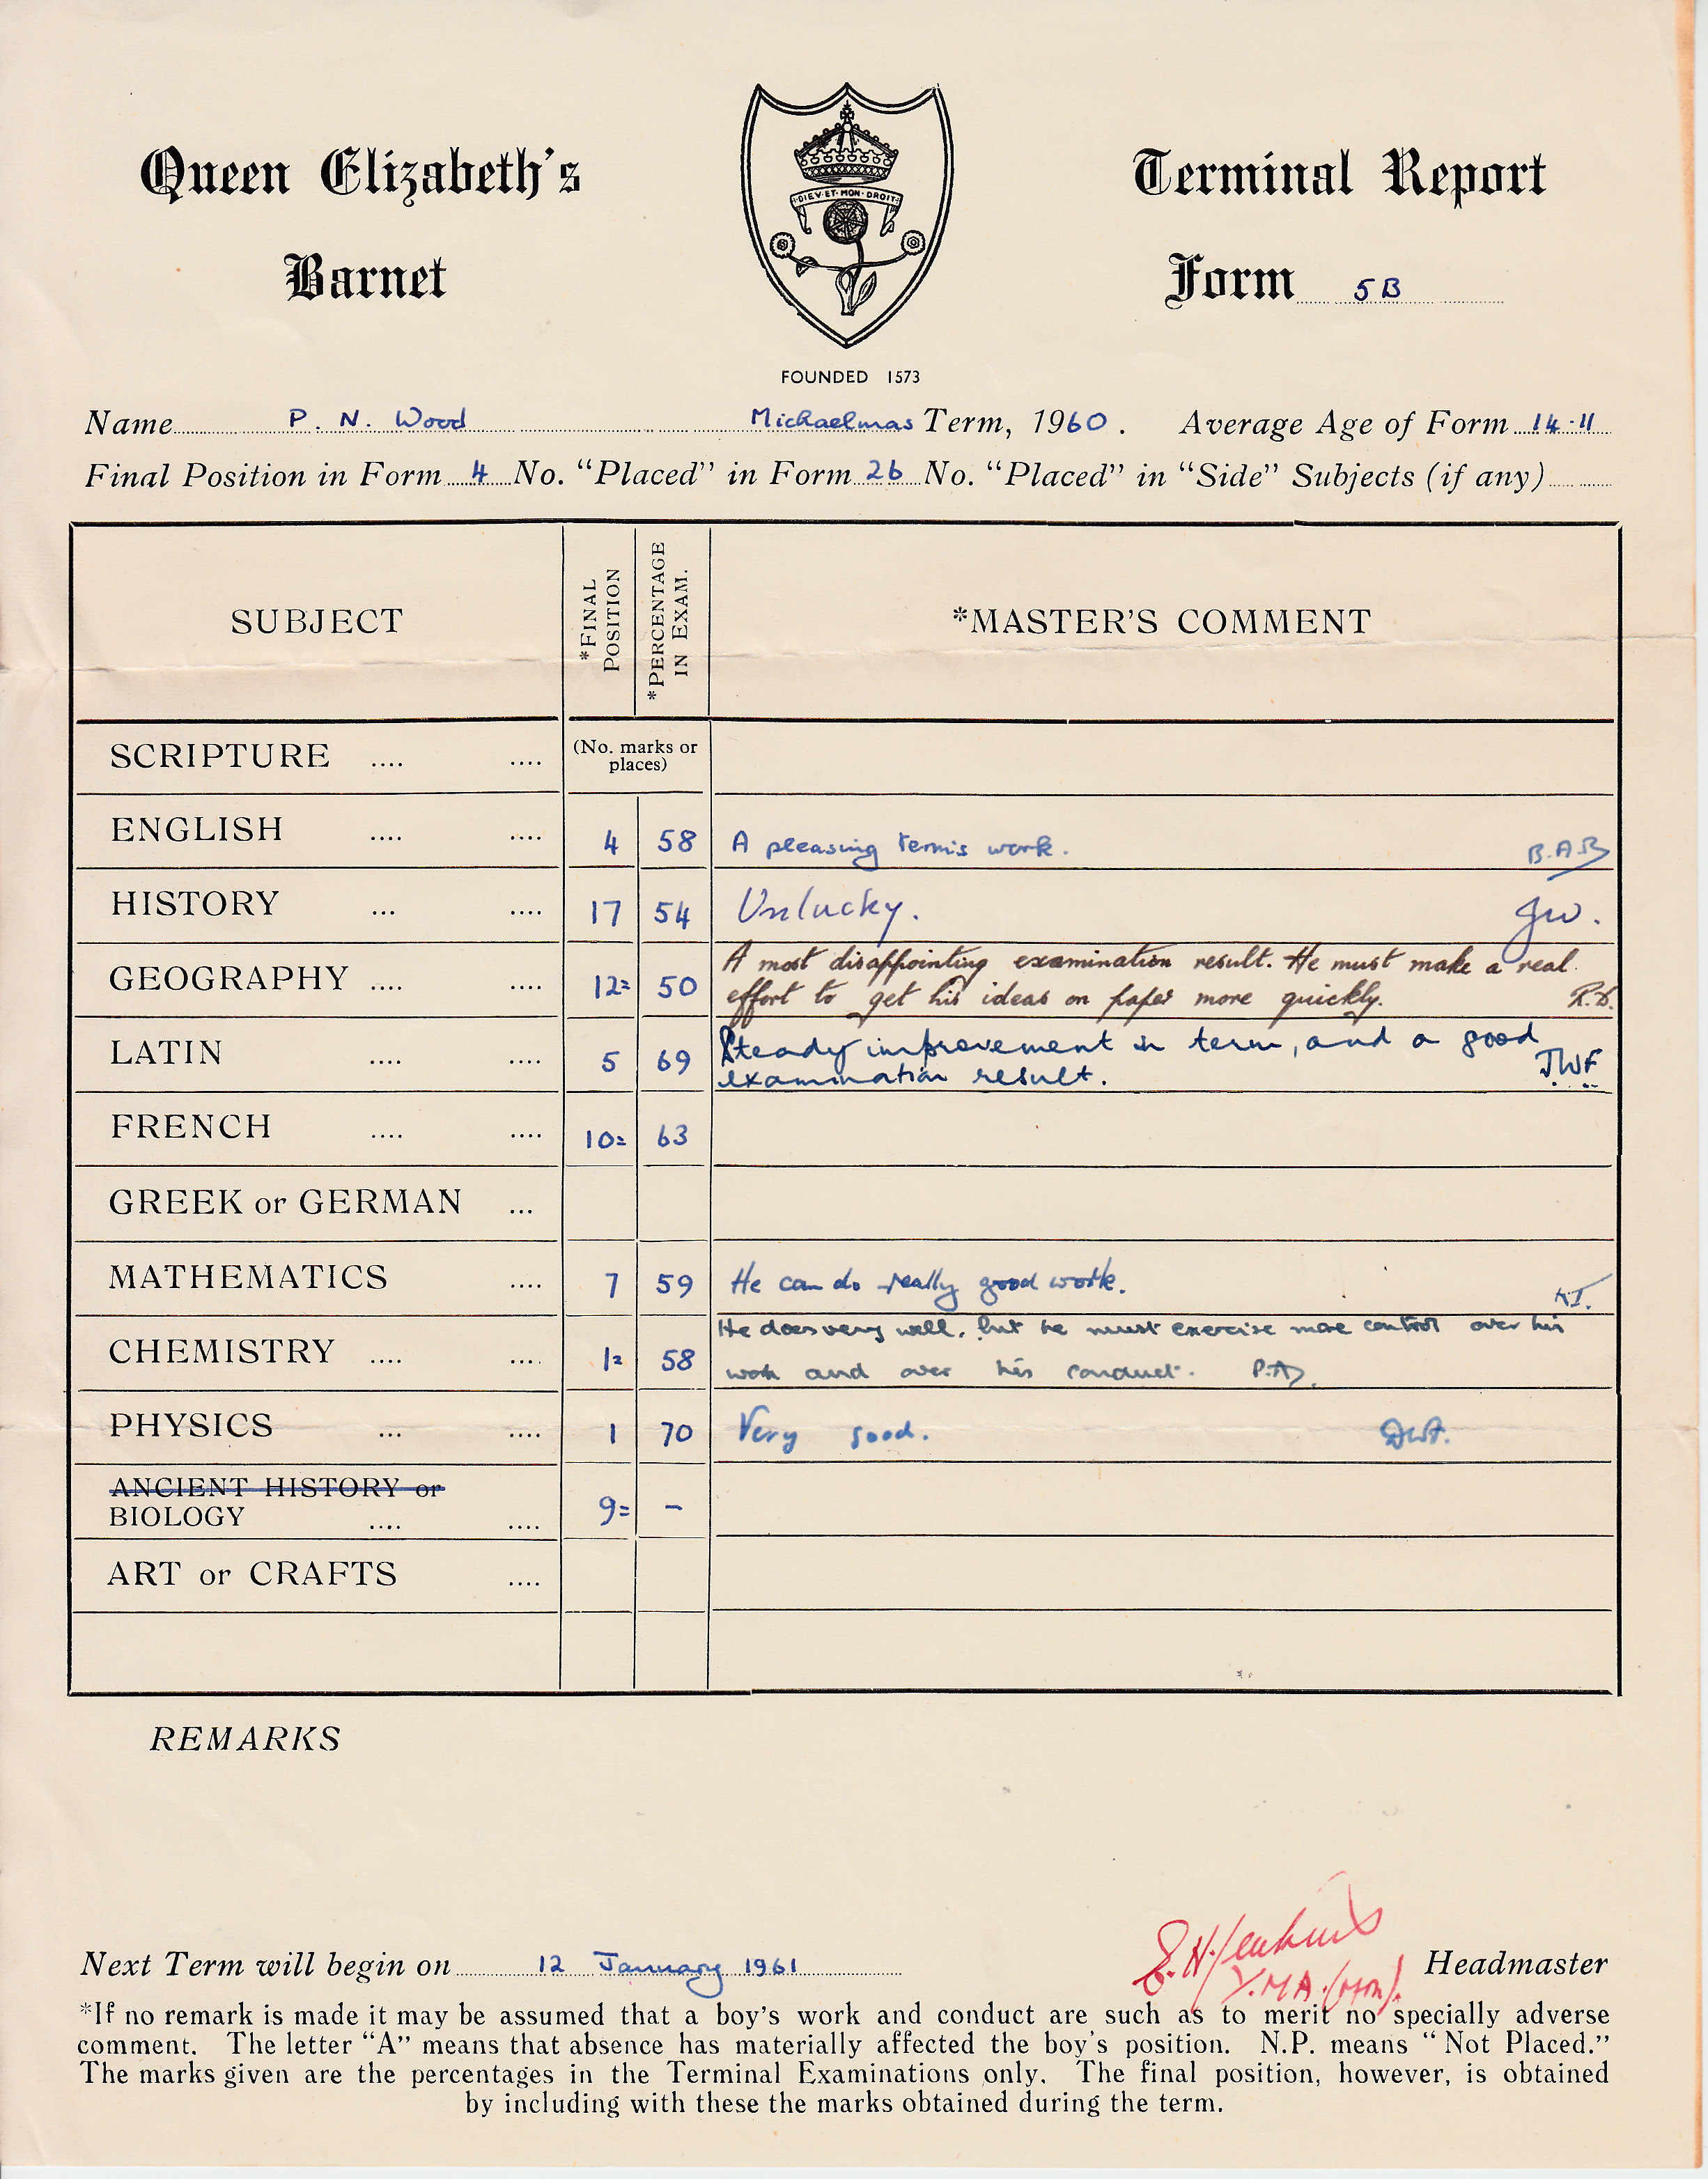 Queen Elizabeth's
Barnet
DIEV·ET·MON·DROIT
FOUNDED 1573
Terminal Report
Form 5B
Name P. N. Wood Michaelmas Term, 1960. Average Age of Form 14·11
Final Position in Form 4 No. "Placed" in Form 26 No. "Placed" in "Side" Subjects (if any)
SUBJECT *FINAL POSITION *PERCENTAGE IN EXAM. *MASTER'S COMMENT
SCRIPTURE .... .... (No. marks or places)
ENGLISH .... .... 4 58 A pleasing term's work. B.A.B
HISTORY ... .... 17 54 Unlucky. JW.
GEOGRAPHY .... .... 12= 50 A most disappointing examination result. He must make a real
effort to get his ideas on paper more quickly.
LATIN .... .... 5 69 Steady improvement in term, and a good
examination result. JWF
FRENCH .... .... 10= 63
GREEK or GERMAN ...
MATHEMATICS .... 7 59 He can do really good work.
CHEMISTRY .... .... 1= 58 He does very well, but he must exercise more control over his
work and over his conduct. P.A.
PHYSICS ... .... 1 70 Very good.
ANCIENT HISTORY or
BIOLOGY .... .... 9= –
ART or CRAFTS ....
REMARKS
Next Term will begin on 12 January 1961 E.H. Jenkins Headmaster
*If no remark is made it may be assumed that a boy's work and conduct are such as to merit no specially adverse
comment. The letter "A" means that absence has materially affected the boy's position. N.P. means "Not Placed."
The marks given are the percentages in the Terminal Examinations only. The final position, however, is obtained
by including with these the marks obtained during the term.